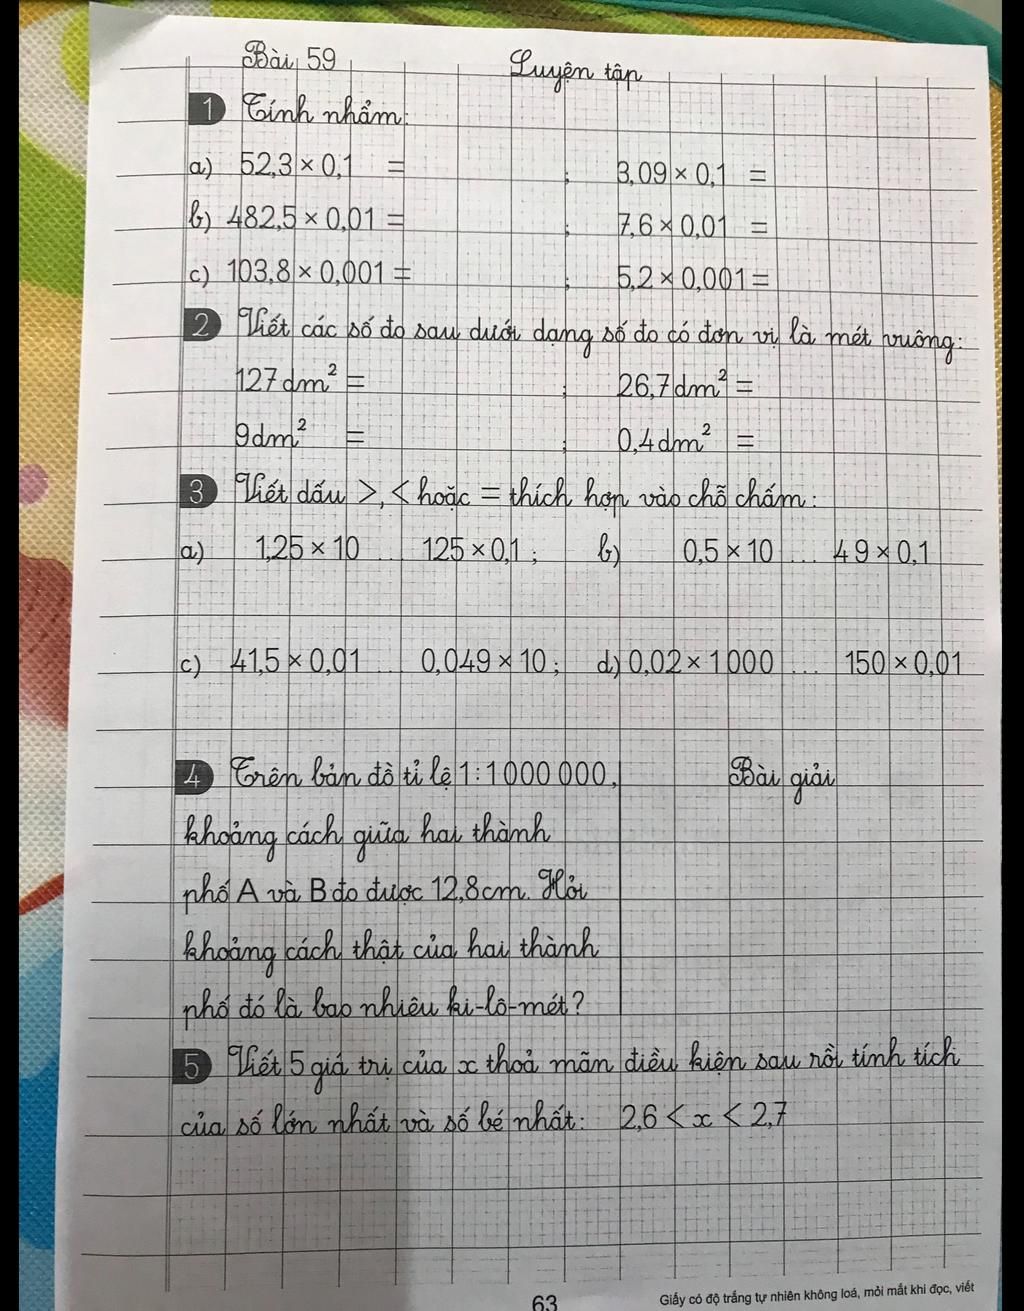 Bài 59 Luyện tập
1 Tính nhẩm:
a) 52,3 × 0,1 = ; 3,09 × 0,1 =
b) 482,5 × 0,01 = ; 7,6 × 0,01 =
c) 103,8 × 0,001 = ; 5,2 × 0,001 =
2 Viết các số đo sau dưới dạng số đo có đơn vị là mét vuông:
127 dm² = ; 26,7 dm² =
9 dm² = ; 0,4 dm² =
3 Viết dấu >, < hoặc = thích hợp vào chỗ chấm:
a) 1,25 × 10 125 × 0,1 ; b) 0,5 × 10 ... 49 × 0,1
c) 41,5 × 0,01 ... 0,049 × 10 ; d) 0,02 × 1000 ... 150 × 0,01
4 Trên bản đồ tỉ lệ 1 : 1 000 000, Bài giải
khoảng cách giữa hai thành
phố A và B đo được 12,8 cm. Hỏi
khoảng cách thật của hai thành
phố đó là bao nhiêu ki-lô-mét?
5 Viết 5 giá trị của x thoả mãn điều kiện sau rồi tính tích
của số lớn nhất và số bé nhất: 2,6 < x < 2,7
63 Giấy có độ trắng tự nhiên không loá, mỏi mắt khi đọc, viết